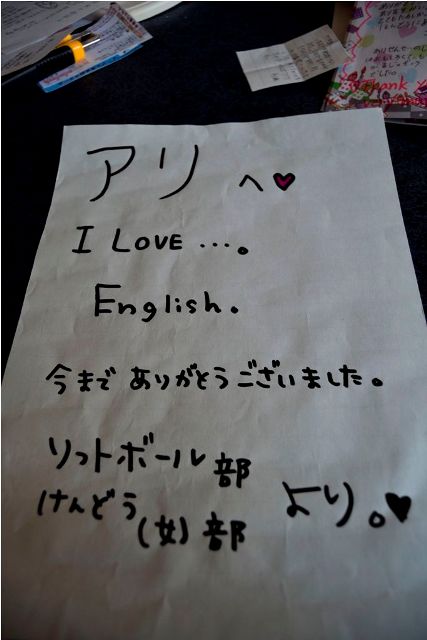 アリ へ♥
I LOVE ･･･。
English。
今まで ありがとうございました。
ソフトボール部
けんどう(女)部 より。♥
Thank